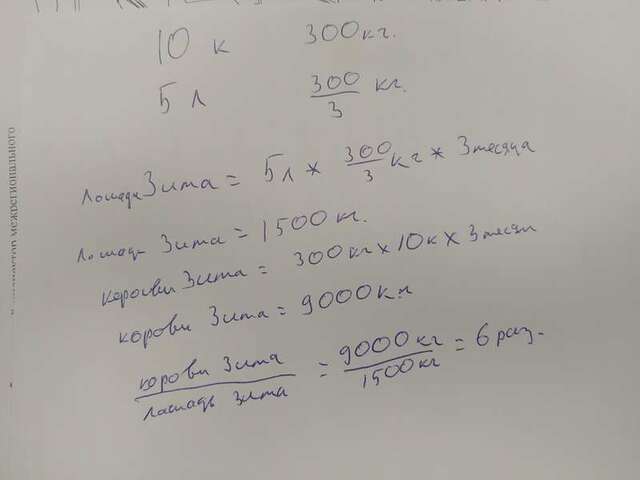 инспектор межрегионального
10 к 300кг.
5 л 300/3 кг.
Лошадь Зима = 5л * 300/3 кг * 3месяца
Лошадь Зима = 1500кг.
Коровы Зима = 300кг × 10к × 3месяц
коровы Зима = 9000кг
коровы Зима / лошадь Зима = 9000кг / 1500кг = 6 раз.